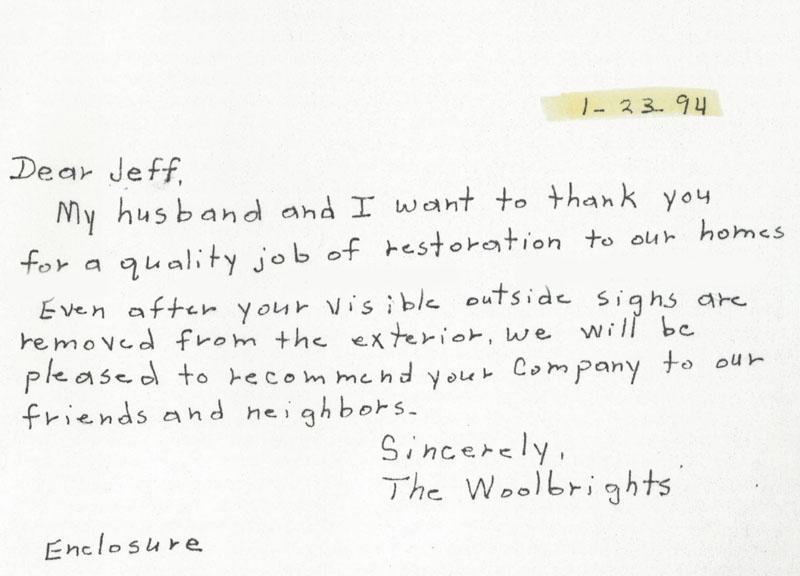 1-23-94
Dear Jeff,
My husband and I want to thank you
for a quality job of restoration to our homes
Even after your visible outside signs are
removed from the exterior, we will be
pleased to recommend your Company to our
friends and neighbors.
Sincerely,
The Woolbrights
Enclosure